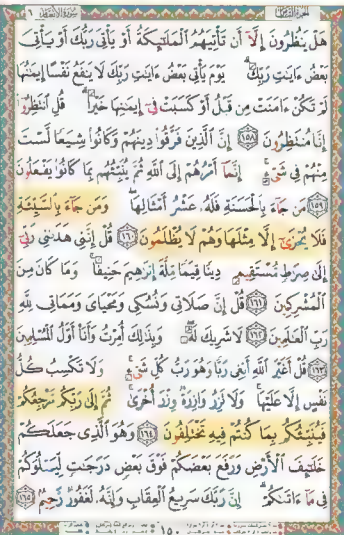 الجزء الثامن سورة الأنعام ٦
هَلْ يَنظُرُونَ إِلَّآ أَن تَأْتِيَهُمُ ٱلْمَلَٰٓئِكَةُ أَوْ يَأْتِىَ رَبُّكَ أَوْ يَأْتِىَ
بَعْضُ ءَايَٰتِ رَبِّكَ ۗ يَوْمَ يَأْتِى بَعْضُ ءَايَٰتِ رَبِّكَ لَا يَنفَعُ نَفْسًا إِيمَٰنُهَا
لَمْ تَكُنْ ءَامَنَتْ مِن قَبْلُ أَوْ كَسَبَتْ فِىٓ إِيمَٰنِهَا خَيْرًا ۗ قُلِ ٱنتَظِرُوٓا۟
إِنَّا مُنتَظِرُونَ ١٥٨ إِنَّ ٱلَّذِينَ فَرَّقُوا۟ دِينَهُمْ وَكَانُوا۟ شِيَعًا لَّسْتَ
مِنْهُمْ فِى شَىْءٍ ۚ إِنَّمَآ أَمْرُهُمْ إِلَى ٱللَّهِ ثُمَّ يُنَبِّئُهُم بِمَا كَانُوا۟ يَفْعَلُونَ
١٥٩ مَن جَآءَ بِٱلْحَسَنَةِ فَلَهُۥ عَشْرُ أَمْثَالِهَا ۖ وَمَن جَآءَ بِٱلسَّيِّئَةِ
فَلَا يُجْزَىٰٓ إِلَّا مِثْلَهَا وَهُمْ لَا يُظْلَمُونَ ١٦٠ قُلْ إِنَّنِى هَدَىٰنِى رَبِّىٓ
إِلَىٰ صِرَٰطٍ مُّسْتَقِيمٍ دِينًا قِيَمًا مِّلَّةَ إِبْرَٰهِيمَ حَنِيفًا ۚ وَمَا كَانَ مِنَ
ٱلْمُشْرِكِينَ ١٦١ قُلْ إِنَّ صَلَاتِى وَنُسُكِى وَمَحْيَاىَ وَمَمَاتِى لِلَّهِ
رَبِّ ٱلْعَٰلَمِينَ ١٦٢ لَا شَرِيكَ لَهُۥ ۖ وَبِذَٰلِكَ أُمِرْتُ وَأَنَا۠ أَوَّلُ ٱلْمُسْلِمِينَ
١٦٣ قُلْ أَغَيْرَ ٱللَّهِ أَبْغِى رَبًّا وَهُوَ رَبُّ كُلِّ شَىْءٍ ۚ وَلَا تَكْسِبُ كُلُّ
نَفْسٍ إِلَّا عَلَيْهَا ۚ وَلَا تَزِرُ وَازِرَةٌ وِزْرَ أُخْرَىٰ ۚ ثُمَّ إِلَىٰ رَبِّكُم مَّرْجِعُكُمْ
فَيُنَبِّئُكُم بِمَا كُنتُمْ فِيهِ تَخْتَلِفُونَ ١٦٤ وَهُوَ ٱلَّذِى جَعَلَكُمْ
خَلَٰٓئِفَ ٱلْأَرْضِ وَرَفَعَ بَعْضَكُمْ فَوْقَ بَعْضٍ دَرَجَٰتٍ لِّيَبْلُوَكُمْ
فِى مَآ ءَاتَىٰكُمْ ۗ إِنَّ رَبَّكَ سَرِيعُ ٱلْعِقَابِ وَإِنَّهُۥ لَغَفُورٌ رَّحِيمٌۢ ١٦٥
١٥٠